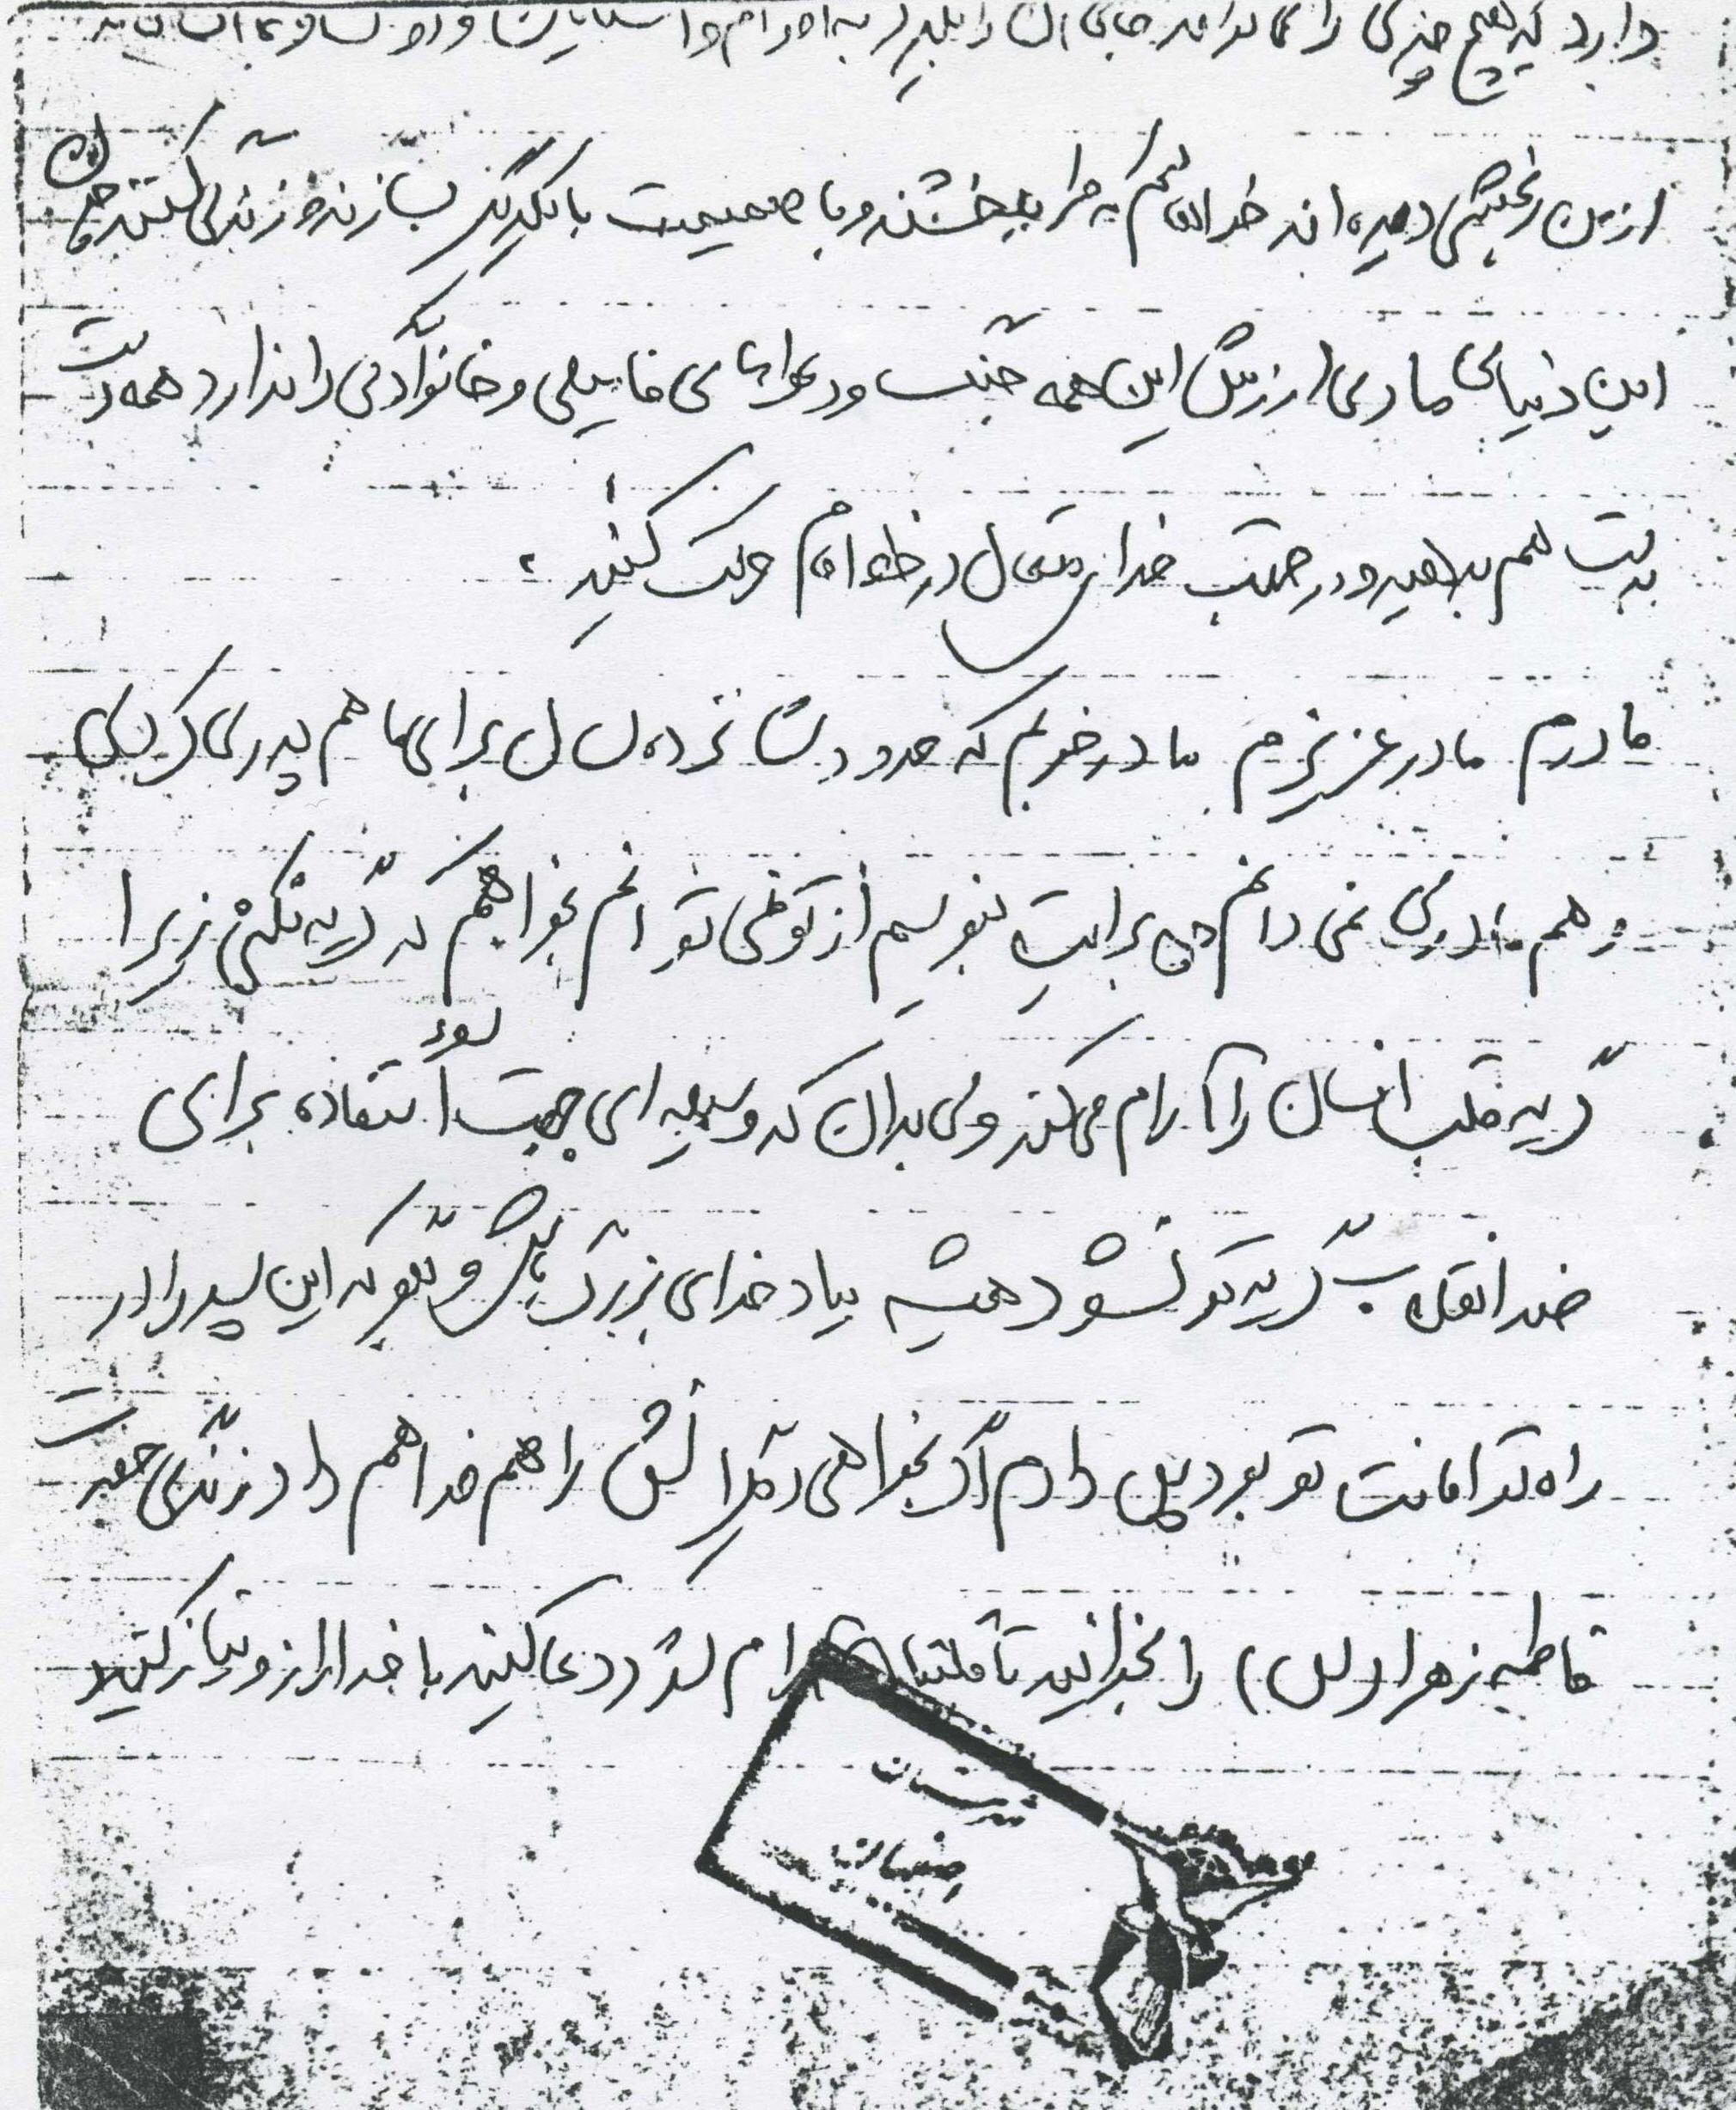 دارد که هیچ چیزی را نمی تواند جای آن را بگیرد به
از من رنجشی دیده اند خواهانم که مرا ببخشند و با صمیمیت با یکدیگر بسازند و زندگی کنند چون
این دنیای مادی ارزش این همه جنگ و دعواهای فامیلی و خانوادگی را ندارد همه دست
بدست هم بدهید و در جهت خدای متعال در خط امام حرکت کنید.
مادرم مادر عزیزم مادر خوبم که حدود شانزده سال برای ما هم پدری کردی
و هم مادری نمی دانم چه برایت بنویسم از تو نمی توانم بخواهم که گریه نکنی زیرا
گریه قلب انسان را آرام میکند ولی بدان که وسیله ای جهت سوء استفاده برای
ضد انقلاب گریه تو نشود همیشه بیاد خدای بزرگ باش و بگو که این پسر را در
راه تو امانت تو بود پس دادم اگر بخواهی دیگرانش را هم خواهم داد زندگی حضرت
فاطمه زهرا (س) را بخوانید تا قلبتان آرام شود دعا کنید با خدا راز و نیاز کنید